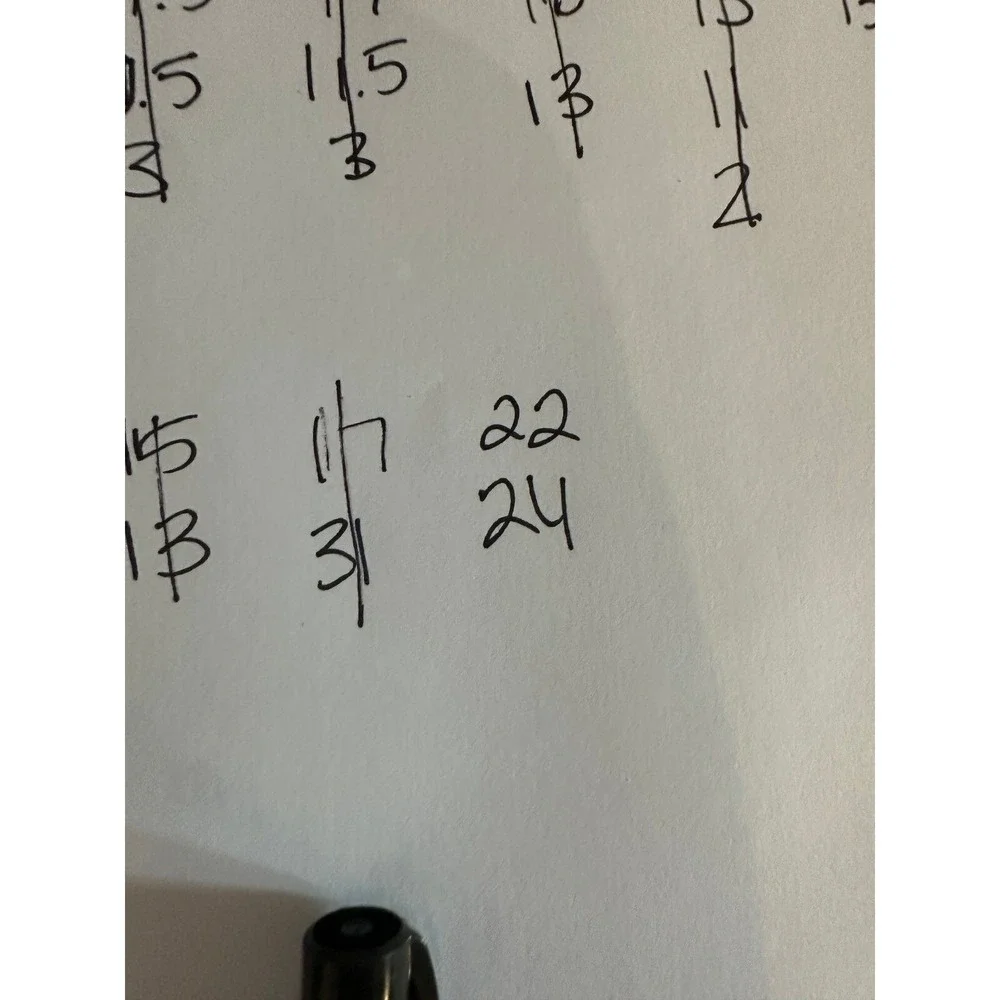 .5 11.5 13 11
3 3 2
15 17 22
13 31 24